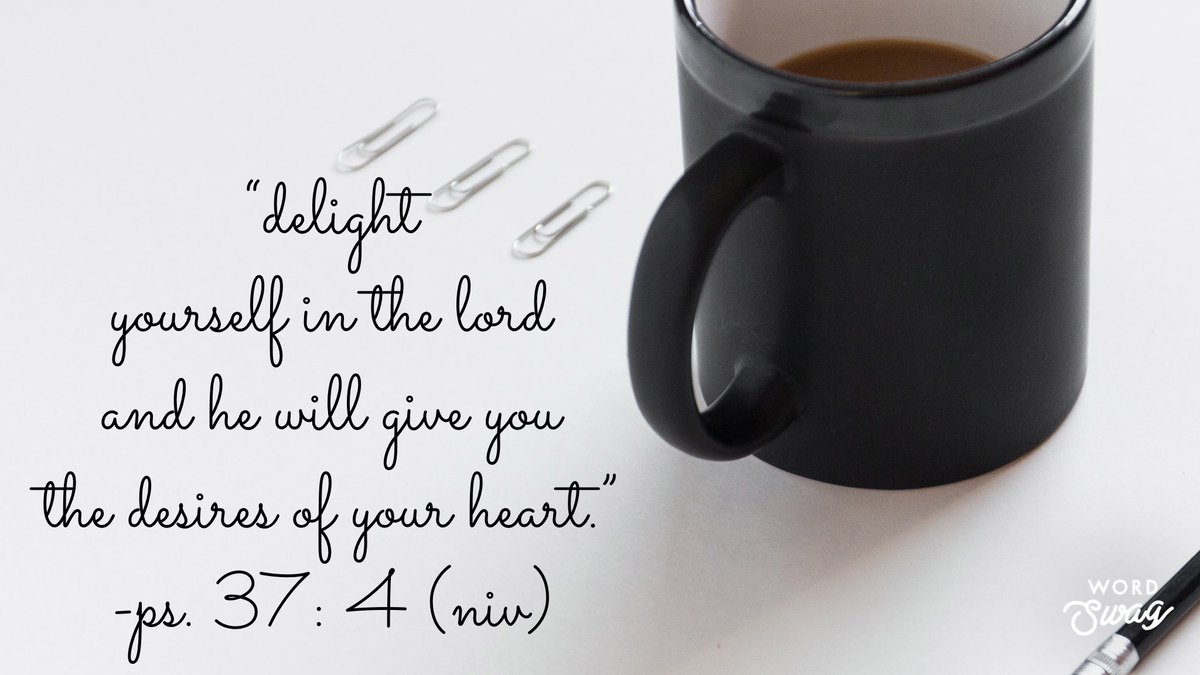 “delight
yourself in the lord
and he will give you
the desires of your heart.”
-ps. 37: 4 (niv)
WORD
Swag